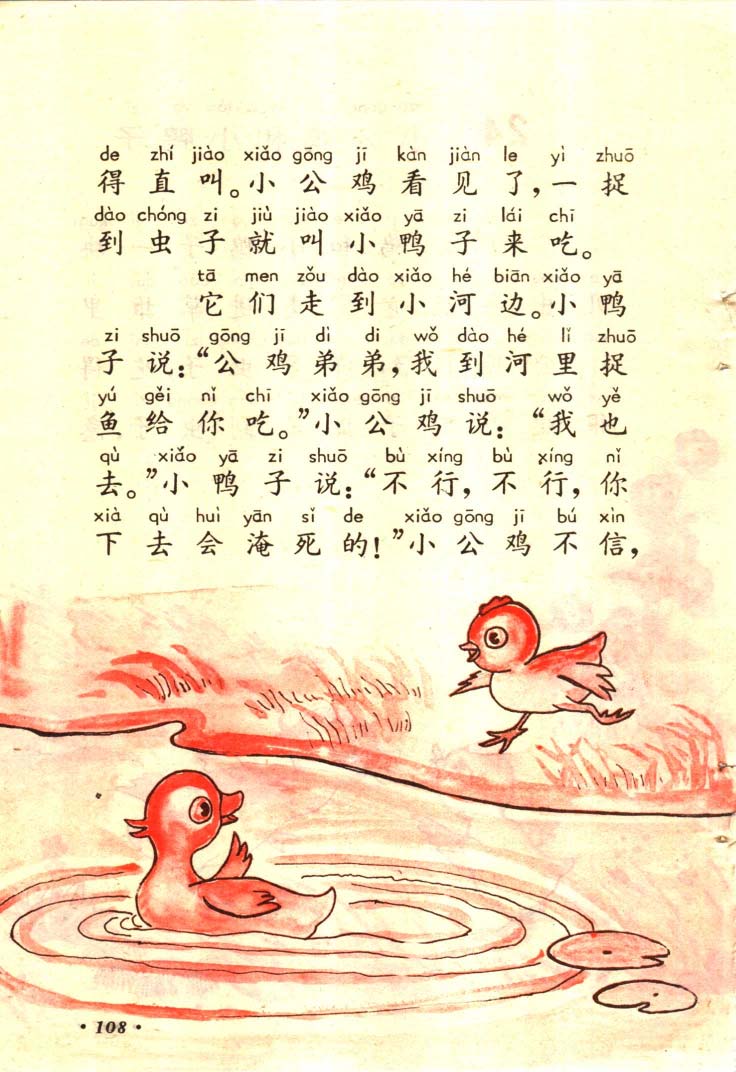 de zhí jiào xiǎo gōng jī kàn jiàn le yì zhuō
得直叫。小公鸡看见了，一捉
dào chóng zi jiù jiào xiǎo yā zi lái chī
到虫子就叫小鸭子来吃。
tā men zǒu dào xiǎo hé biān xiǎo yā
它们走到小河边。小鸭
zi shuō gōng jī dì di wǒ dào hé lǐ zhuō
子说：“公鸡弟弟，我到河里捉
yú gěi nǐ chī xiǎo gōng jī shuō wǒ yě
鱼给你吃。”小公鸡说：“我也
qù xiǎo yā zi shuō bù xíng bù xíng nǐ
去。”小鸭子说：“不行，不行，你
xià qù huì yān sǐ de xiǎo gōng jī bú xìn
下去会淹死的！”小公鸡不信，
· 108 ·